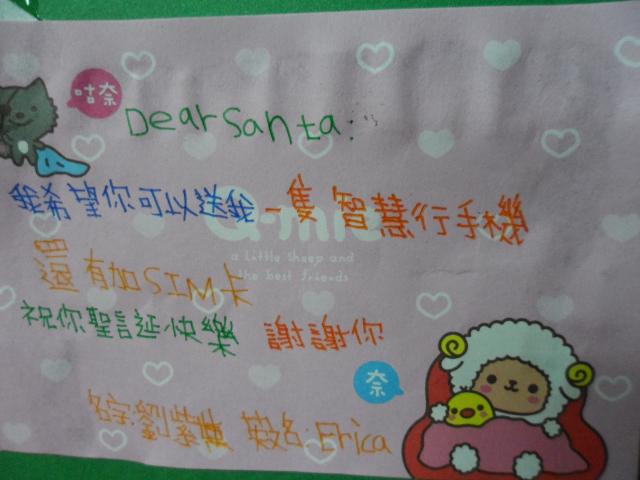 咕奈
Dear Santa:
我希望你可以送我一隻智慧行手機
a little sheep and
the best friends
有加SIM卡
祝你聖誕快樂 謝謝你
奈
英名:Erica